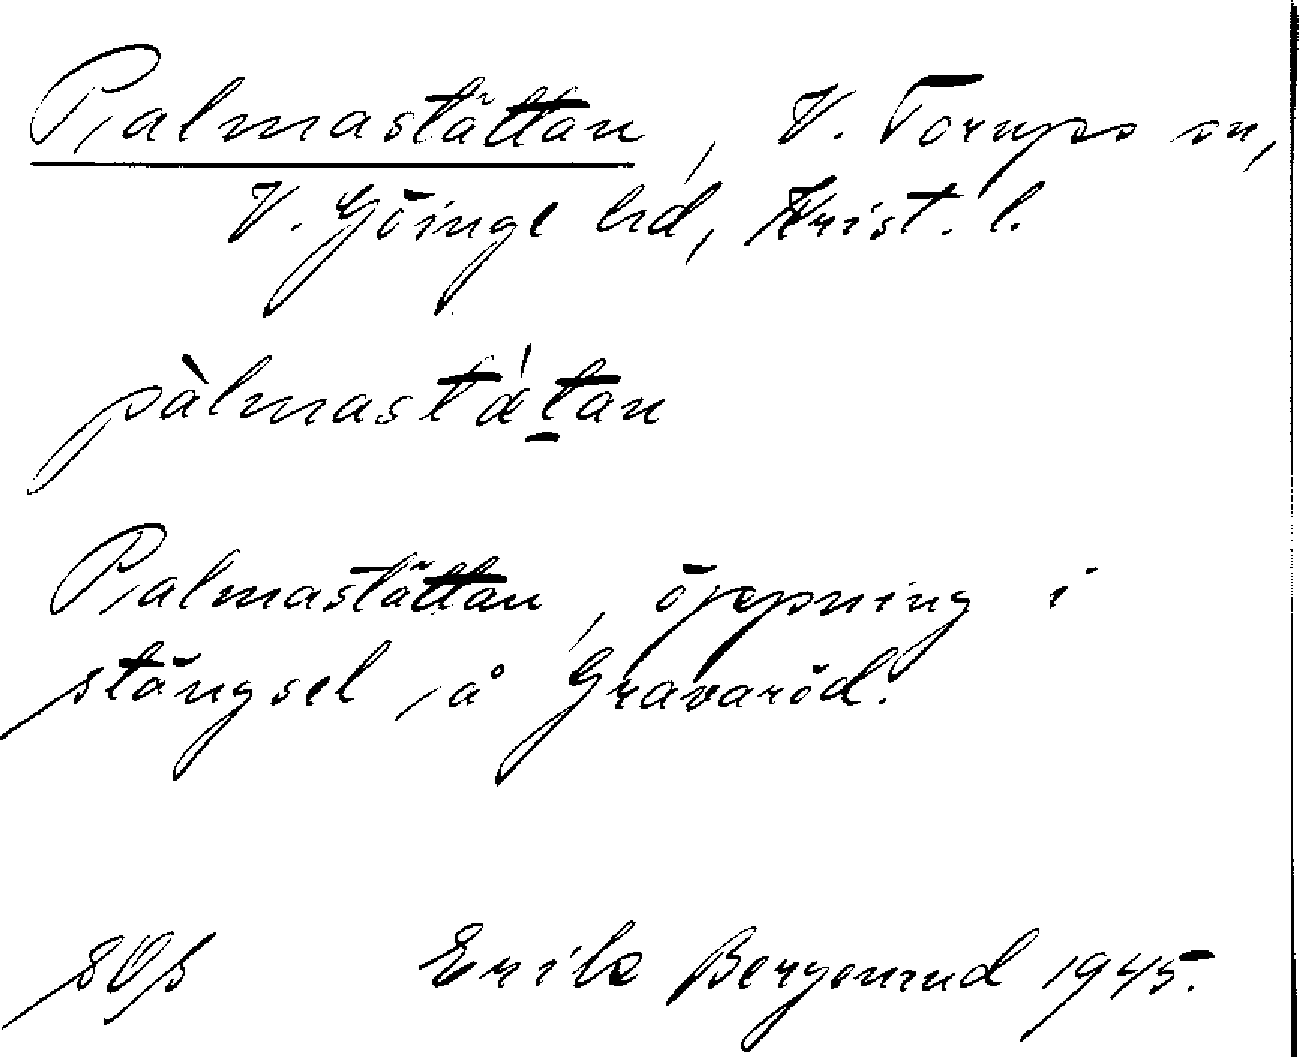 Palmastättan, V. Torups sn,
V. Göinge hd, Krist. l.
pàlmastǽt̲an
Palmastättan, öppning i
stängsel å Gravaröd.
Erik Bergenrud 1945.